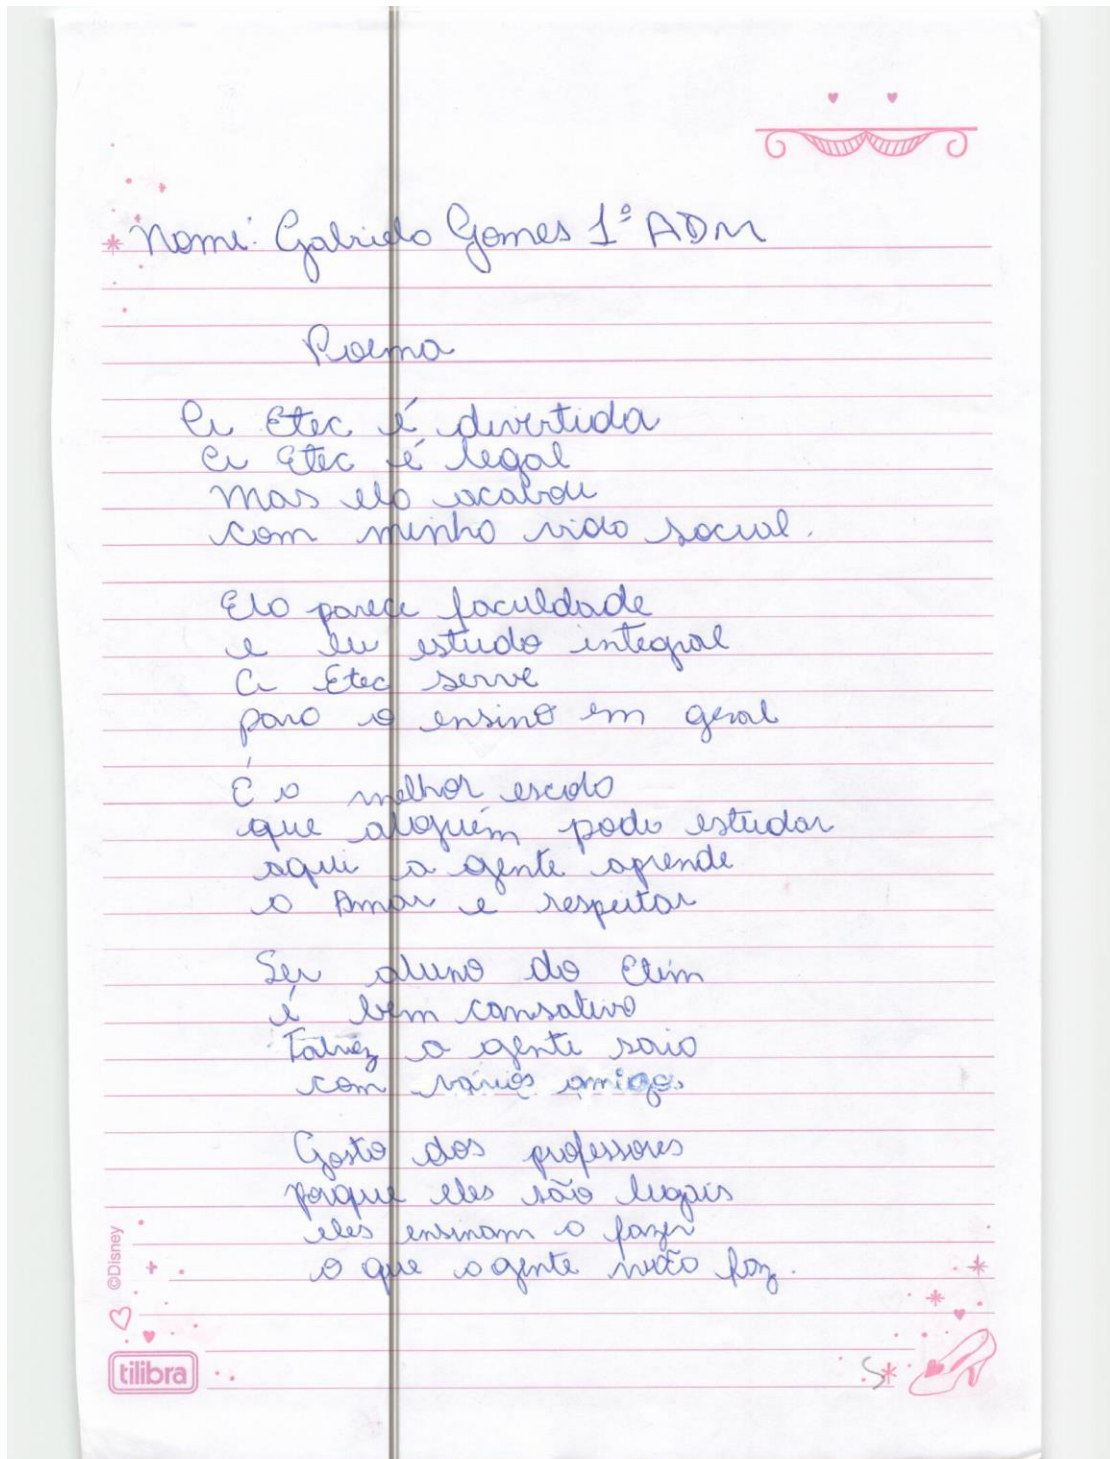 Nome: Gabriela Gomes 1º ADM
Poema
A Etec é divertida
A Etec é legal
Mas ela acabou
com minha vida social.
Ela parece faculdade
e eu estudo integral
A Etec serve
para o ensino em geral
É a melhor escola
que alguém pode estudar
aqui a gente aprende
a Amar e respeitar
Ser aluno do Etim
é bem cansativo
Talvez a gente saia
com vários amigos
Gosto dos professores
porque eles são legais
eles ensinam a fazer
o que a gente não faz.
©Disney
tilibra